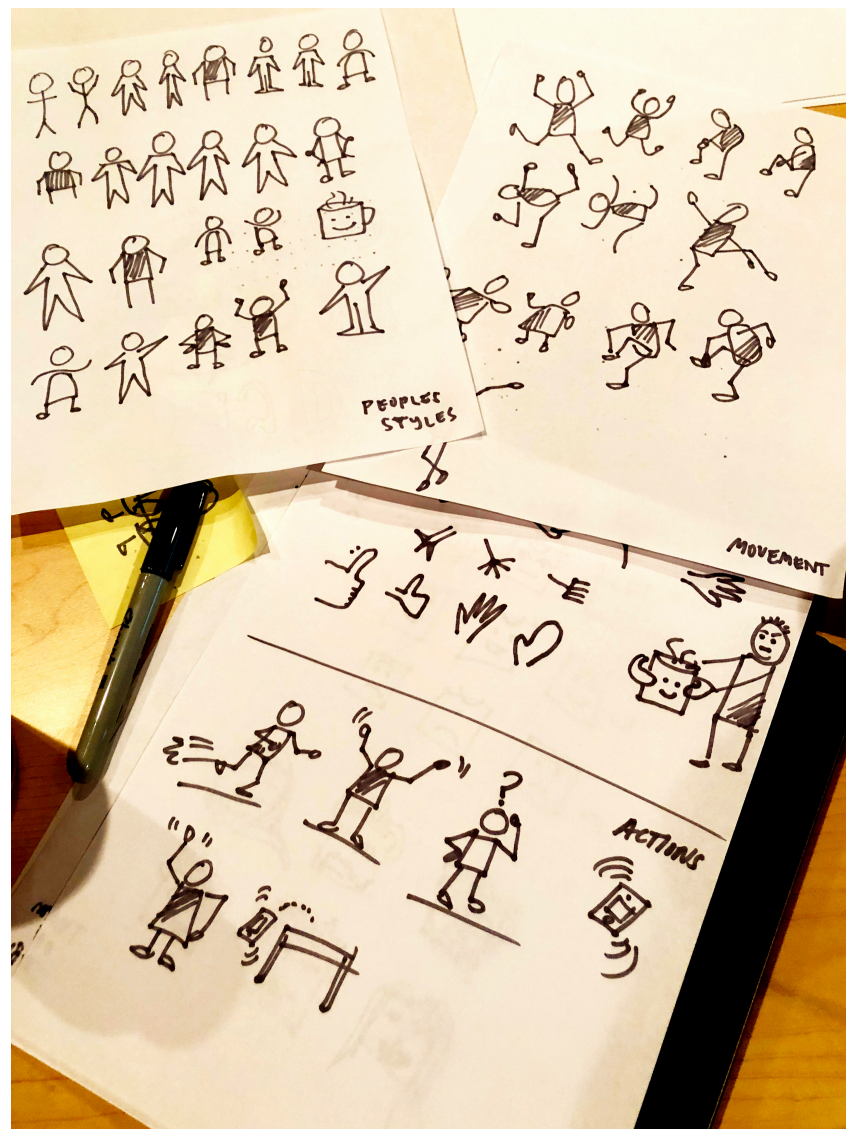 PEOPLES
STYLES
MOVEMENT
?
ACTIONS